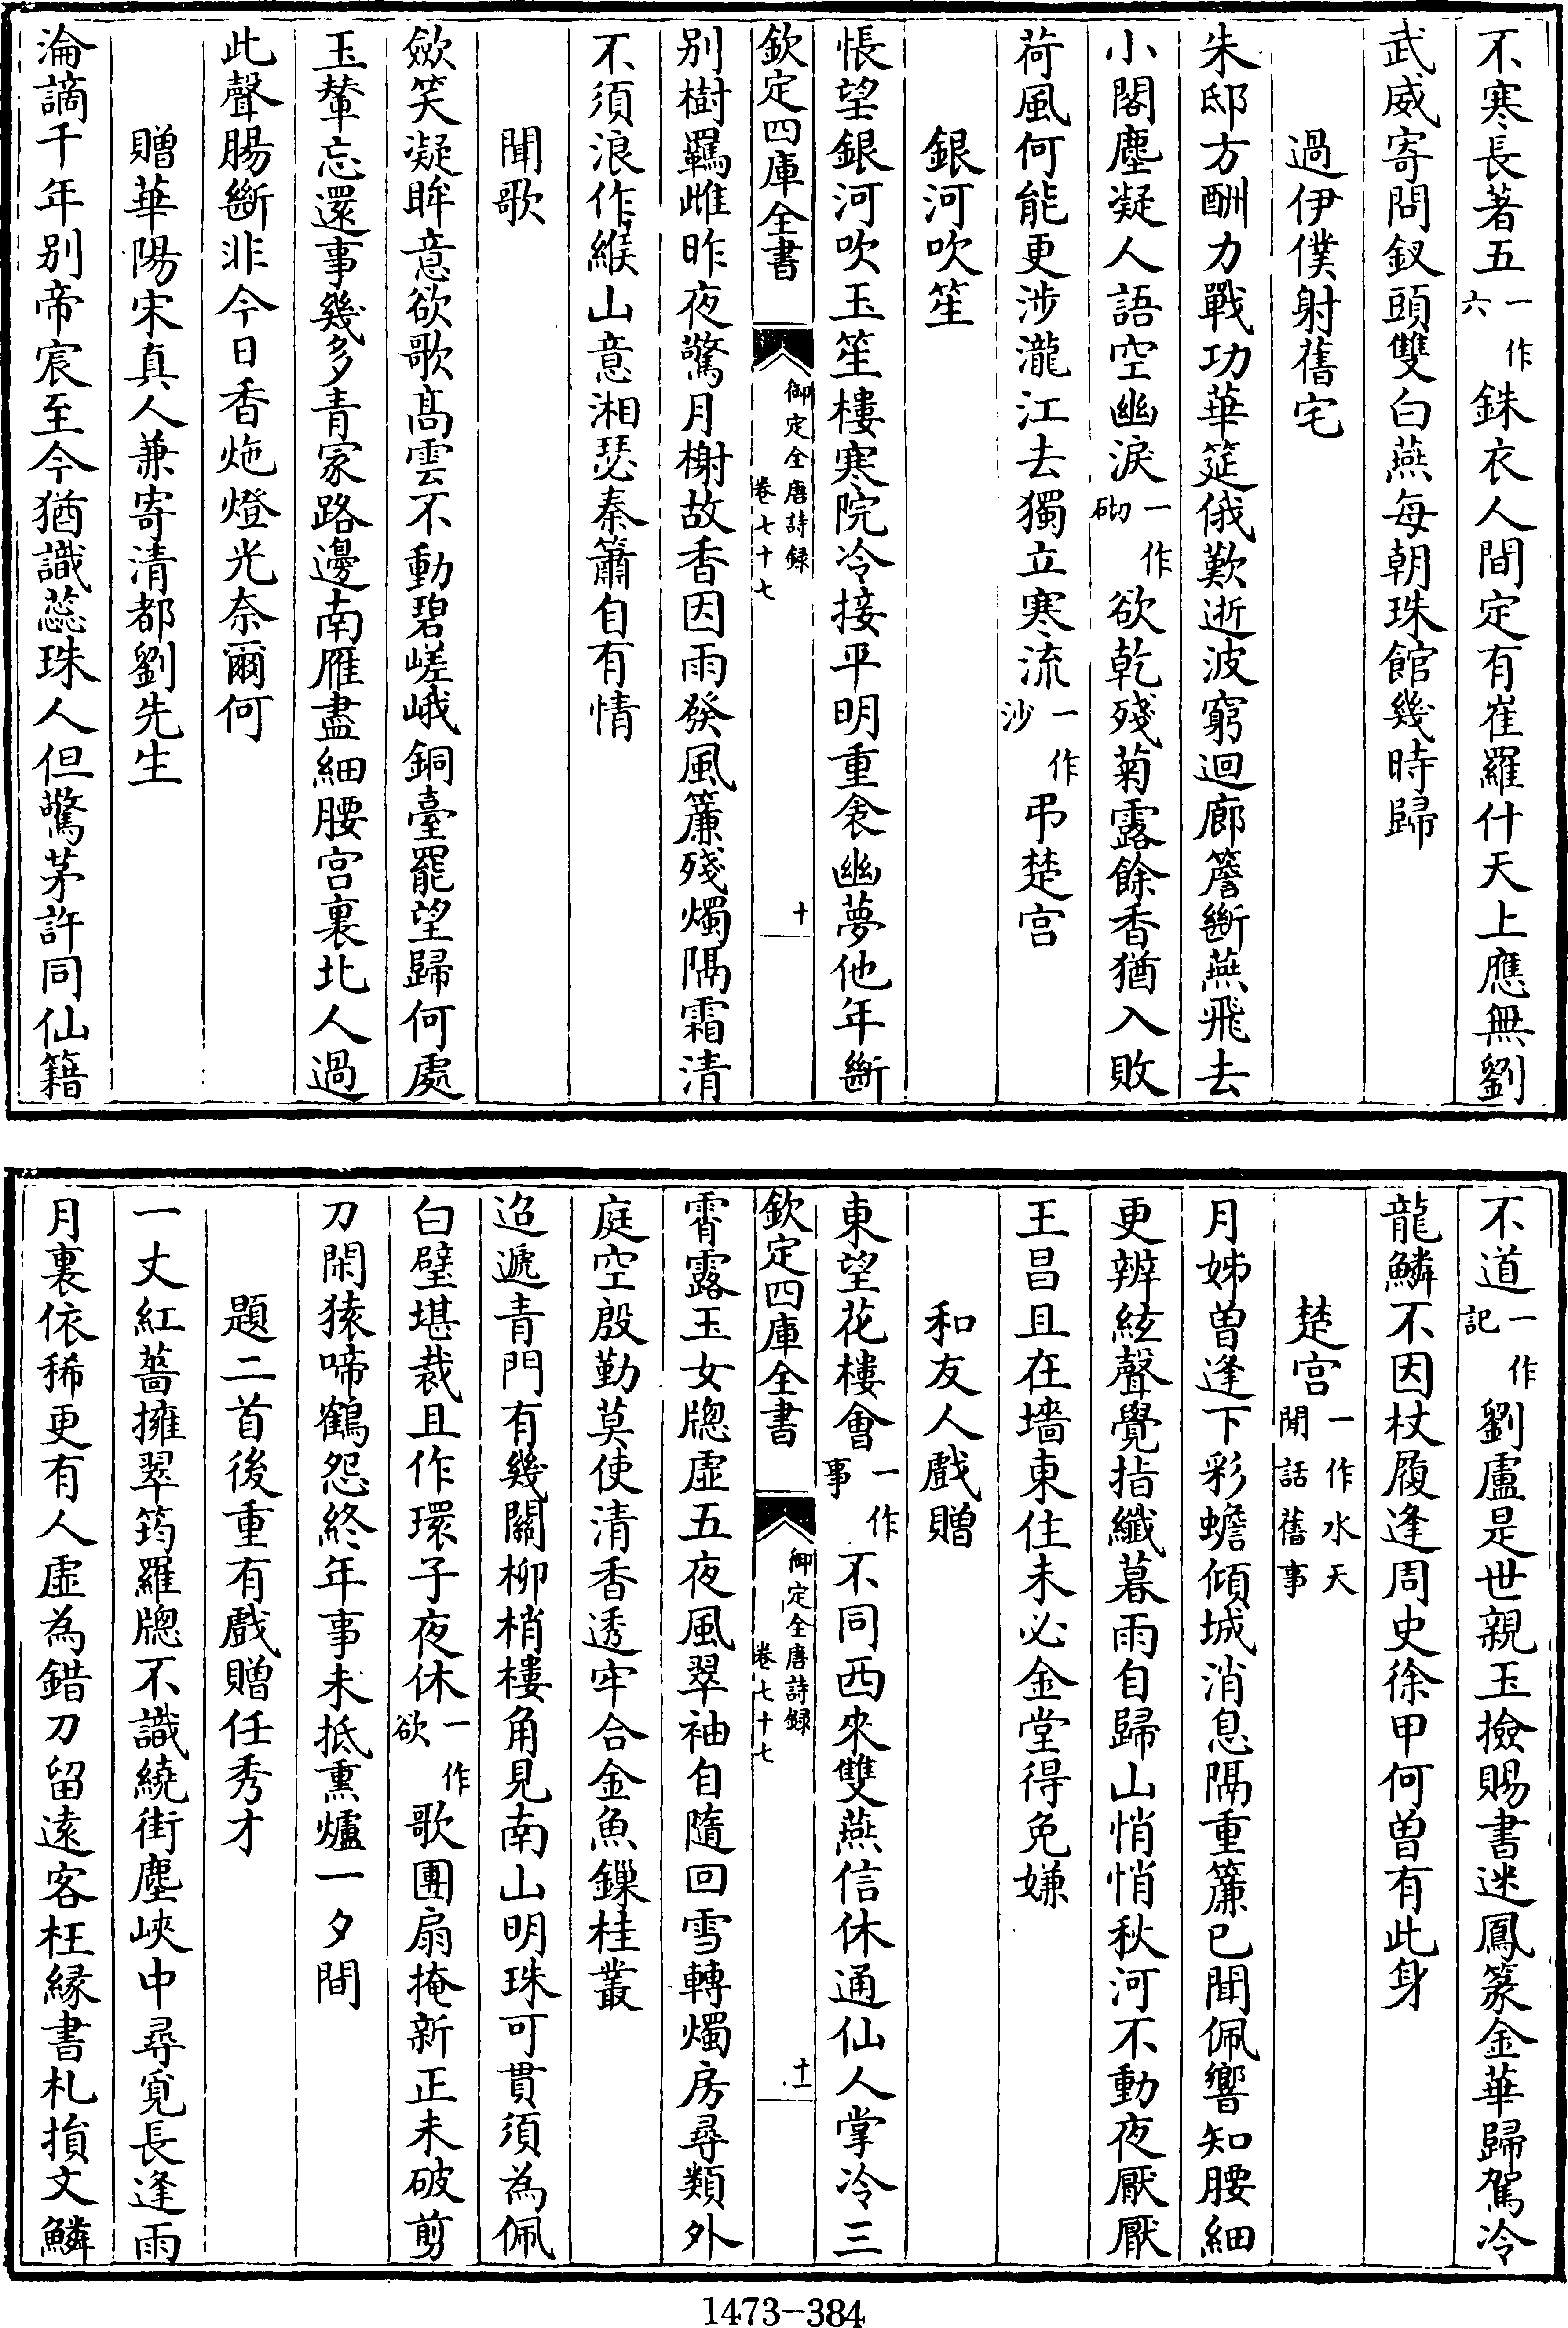 不寒長著五一作六銖衣人間定有崔羅什天上應無劉
武威寄問釵頭雙白燕每朝珠館幾時歸
過伊僕射舊宅
朱邸方酬力戰功華筵俄歎逝波窮迴廊簷斷燕飛去
小閣塵凝人語空幽淚一作砌欲乾殘菊露餘香猶入敗
荷風何能更涉瀧江去獨立寒流一作沙弔楚宫
銀河吹笙
悵望銀河吹玉笙樓寒院冷接平明重衾幽夢他年斷
欽定四庫全書 御定全唐詩録 卷七十七 十
别樹羈雌昨夜驚月榭故香因雨發風簾殘燭隔霜清
不須浪作緱山意湘瑟秦簫自有情
聞歌
斂笑凝眸意欲歌髙雲不動碧嵯峨銅臺罷望歸何處
玉輦忘還事幾多青冢路邊南雁盡細腰宫裏北人過
此聲腸斷非今日香炧燈光奈爾何
贈華陽宋真人兼寄清都劉先生
淪謫千年别帝宸至今猶識蕊珠人但驚茅許同仙籍
不道一作記劉盧是世親玉撿賜書迷鳳篆金華歸駕冷
龍鱗不因杖履逢周史徐甲何曾有此身
楚宫一作水天閒話舊事
月姊曾逢下彩蟾傾城消息隔重簾已聞佩響知腰細
更辨絃聲覺指纖暮雨自歸山悄悄秋河不動夜厭厭
王昌且在墻東住未必金堂得免嫌
和友人戲贈
東望花樓會一作事不同西來雙燕信休通仙人掌冷三
欽定四庫全書 御定全唐詩録 卷七十七 十一
霄露玉女牕虚五夜風翠袖自隨回雪轉燭房尋類外
庭空殷勤莫使清香透牢合金魚鏁桂叢
迢遞青門有幾關柳梢樓角見南山明珠可貫須為佩
白璧堪裁且作環子夜休一作欲歌團扇掩新正未破剪
刀閑猿啼鶴怨終年事未抵熏爐一夕間
題二首後重有戲贈任秀才
一丈紅薔擁翠筠羅牕不識繞街塵峽中尋覓長逢雨
月裏依稀更有人虚為錯刀留逺客枉縁書札損文鱗
1473-384